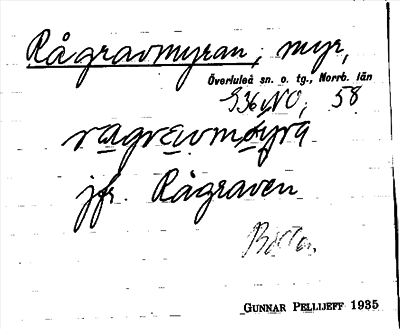 Rågravmyran, myr,
Överluleå sn. o. tg., Norrb. län
S36NO, 58
jfr. Rågraven
GUNNAR PELLIJEFF 1935